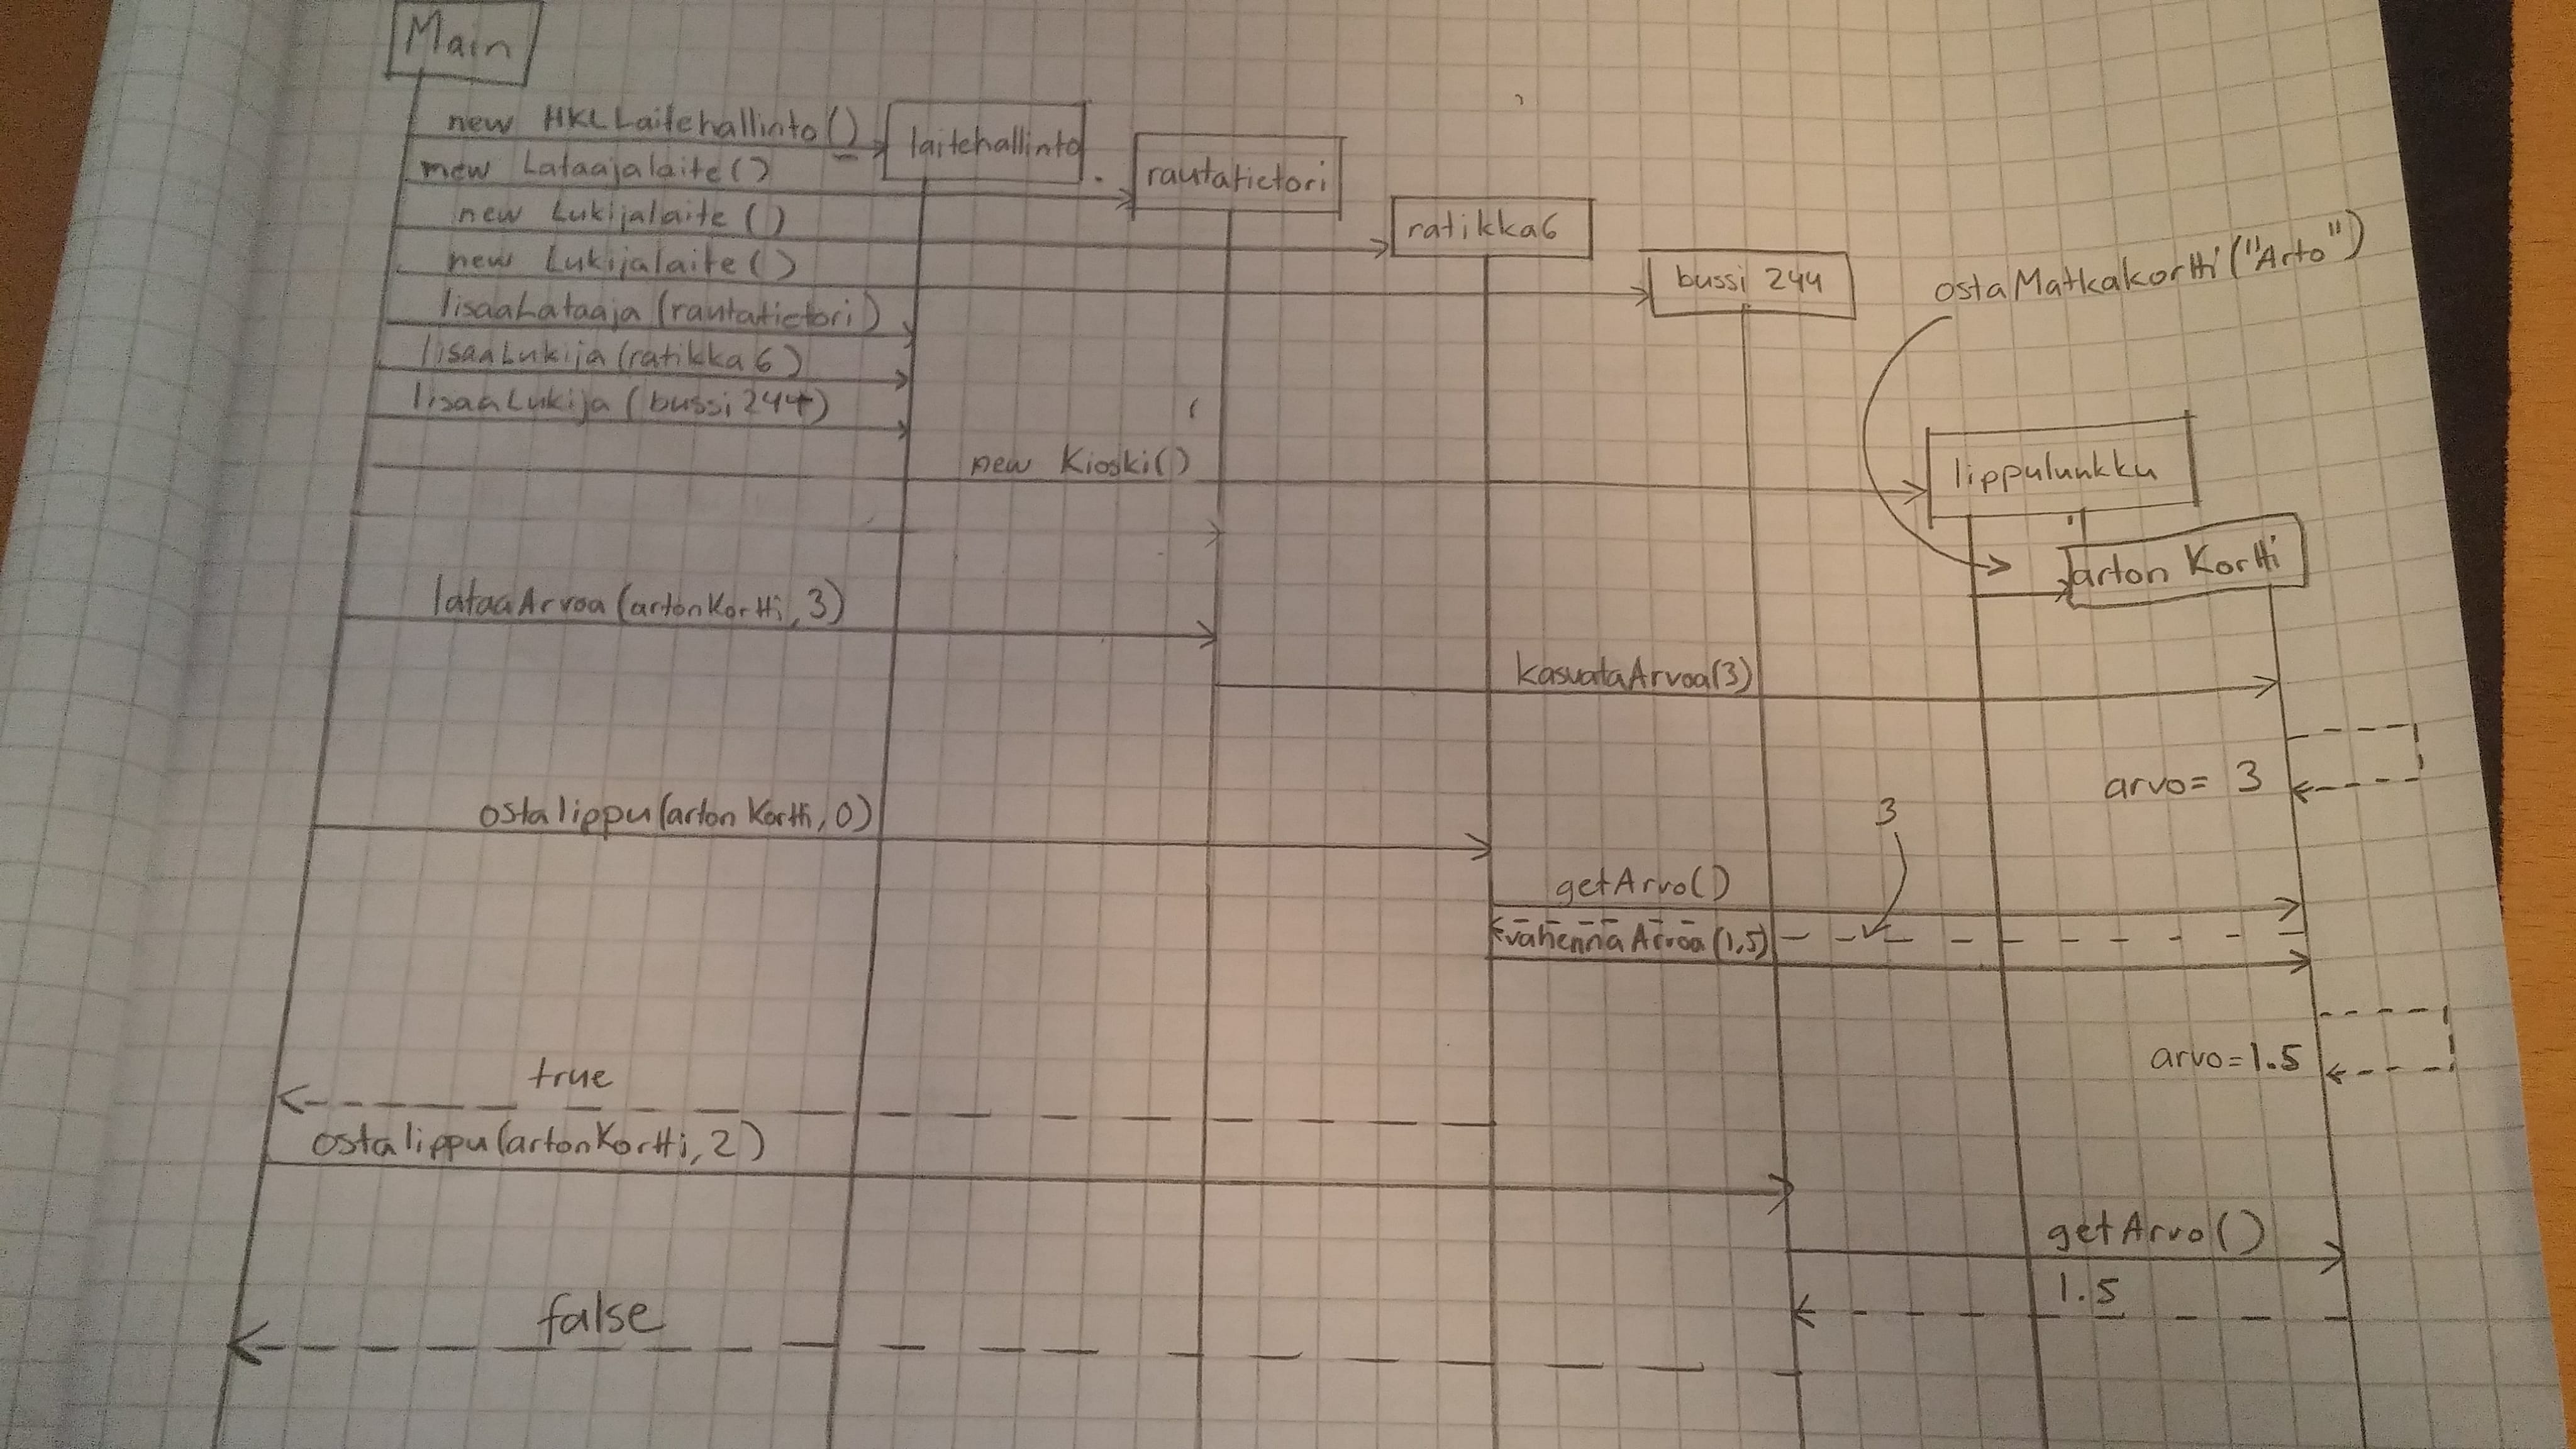 Main
new HKLLaitehallinto()
laitehallinto
new Lataajalaite()
rautatietori
new Lukijalaite()
ratikka6
new Lukijalaite()
bussi 244
ostaMatkakortti("Arto")
lisaaLataaja(rautatietori)
lisaaLukija(ratikka6)
lisaaLukija(bussi244)
new Kioski()
lippuluukku
arton Kortti
lataaArvoa(artonKortti, 3)
kasvataArvoa(3)
arvo= 3
ostalippu(artonKortti, 0)
3
getArvo()
vahennaArvoa(1,5)
arvo=1.5
true
ostalippu(artonKortti, 2)
getArvo()
1.5
false